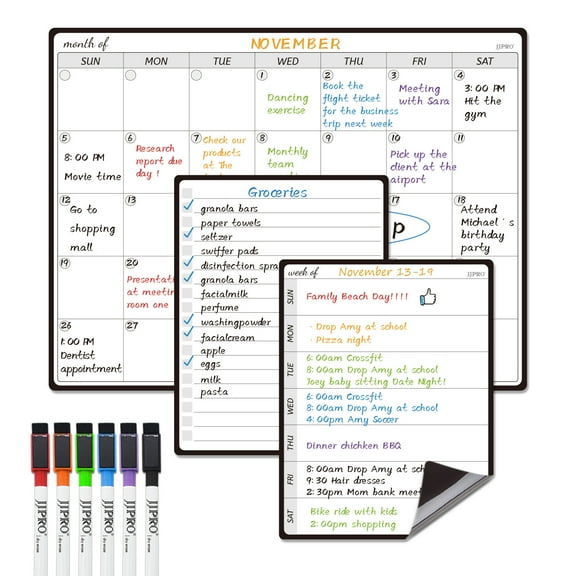 month of NOVEMBER JJPRO
SUN MON TUE WED THU FRI SAT
1
Dancing
exercise
2
Book the
flight ticket
for the business
trip next week
3
Meeting
with Sara
4
3:00 PM
Hit the
gym
5
8:00 PM
Movie time
6
Research
report due
day!
7
Check our
products
at the
8
Monthly
team
9
10
Pick up the
client at the
airport
11
12
Go to
shopping
mall
13
17
18
Attend
Michael's
birthday
party
19
20
Presentati
at meetin
room one
26
1:00 PM
Dentist
appointment
27
Groceries
granola bars
paper towels
seltzer
swiffer pads
disinfection spra
granola bars
facialmilk
perfume
washingpowder
facialcream
apple
eggs
milk
pasta
week of November 13-19 JJPRO
SUN
Family Beach Day!!!!
MON
· Drop Amy at school
· Pizza night
TUE
6:00am Crossfit
8:00am Drop Amy at school
Joey baby sitting Date Night!
WED
6:00am Crossfit
8:00am Drop Amy at school
4:00pm Amy Soccer
THU
Dinner chichken BBQ
FRI
8:00am Drop Amy at sch
9:30 Hair dresses
2:30pm Mom bank mee
SAT
Bike ride with kids
2:00pm shopping
JJPRO
JJPRO
JJPRO
JJPRO
JJPRO
JJPRO